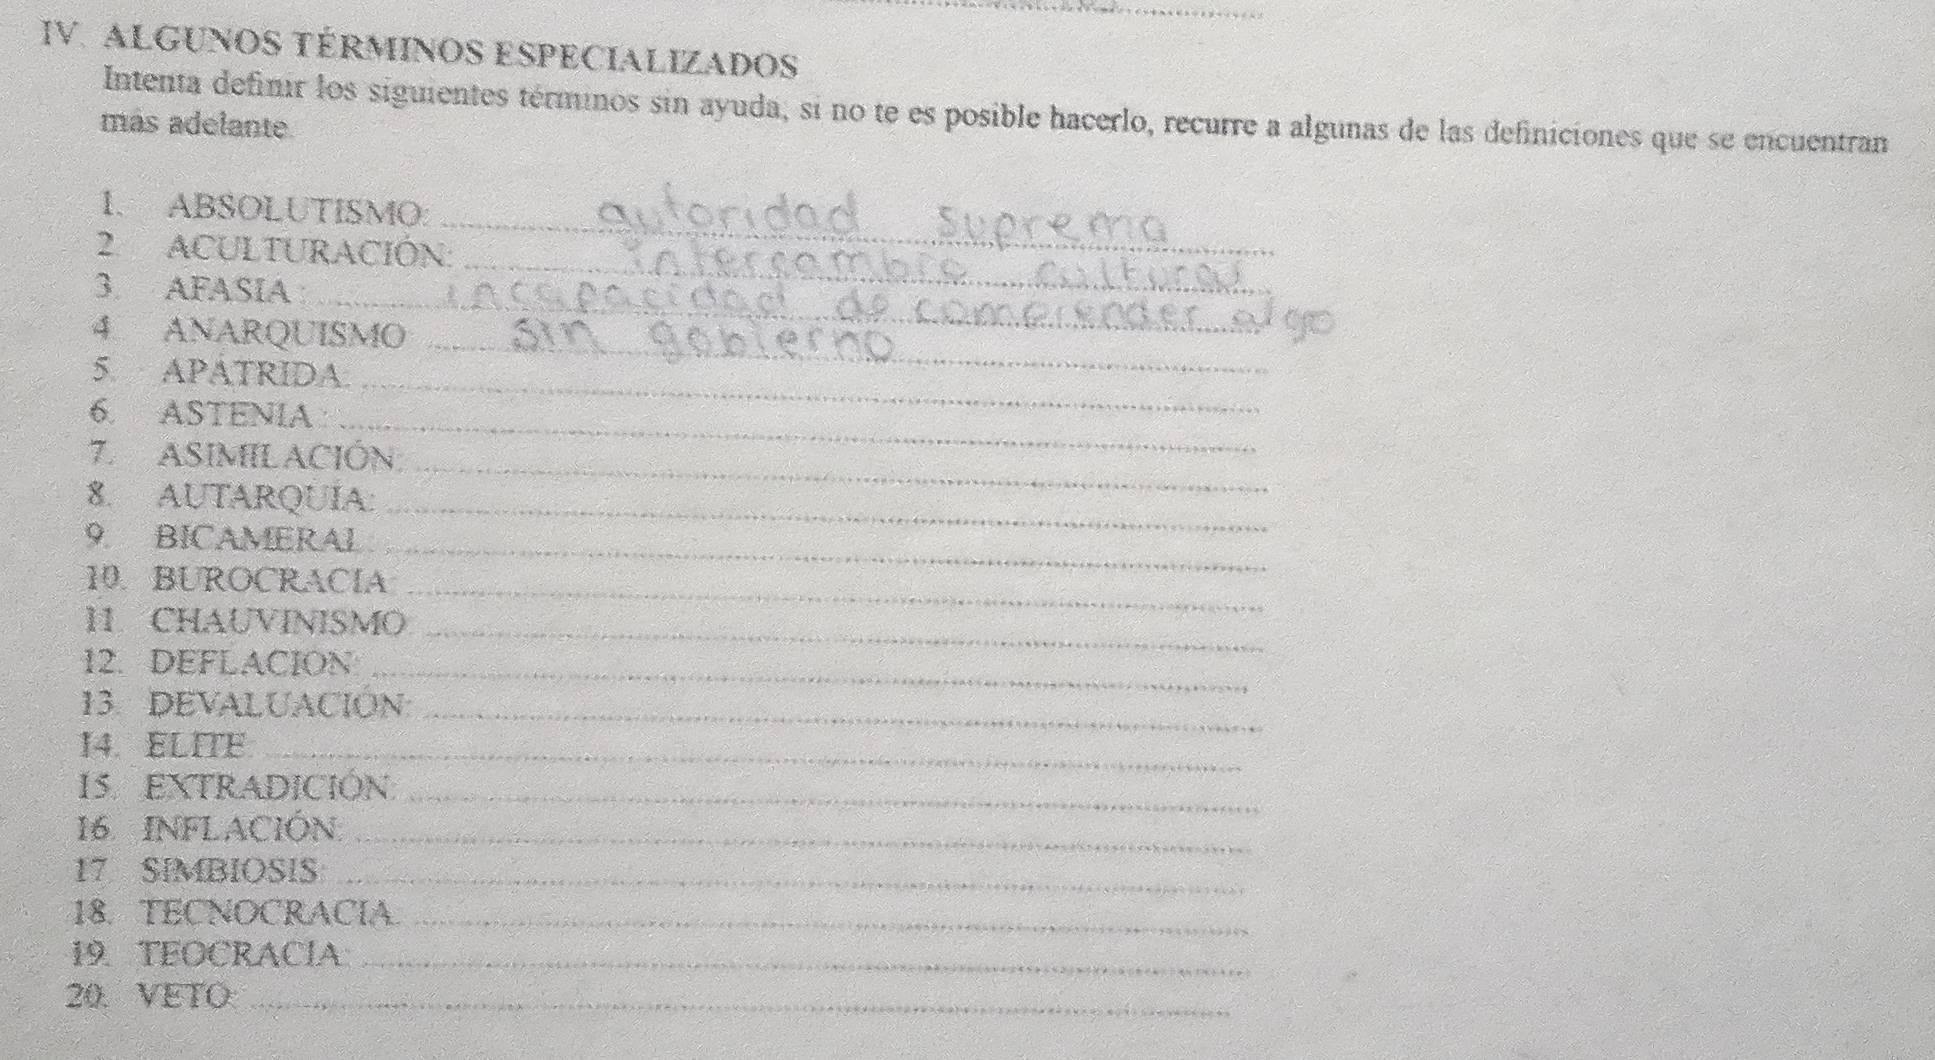 IV. ALGUNOS TÉRMINOS ESPECIALIZADOS
Intenta definir los siguientes términos sin ayuda; si no te es posible hacerlo, recurre a algunas de las definiciones que se encuentran
más adelante.
1. ABSOLUTISMO: autoridad suprema
2. ACULTURACIÓN: intercambio cultural
3. AFASIA: incapacidad de comprender algo
4. ANARQUISMO sin gobierno
5. APÁTRIDA:
6. ASTENIA:
7. ASIMILACIÓN:
8. AUTARQUÍA:
9. BICAMERAL:
10. BUROCRACIA:
11. CHAUVINISMO
12. DEFLACION:
13. DEVALUACIÓN:
14. ELITE:
15. EXTRADICIÓN:
16. INFLACIÓN:
17. SIMBIOSIS:
18. TECNOCRACIA:
19. TEOCRACIA:
20. VETO: